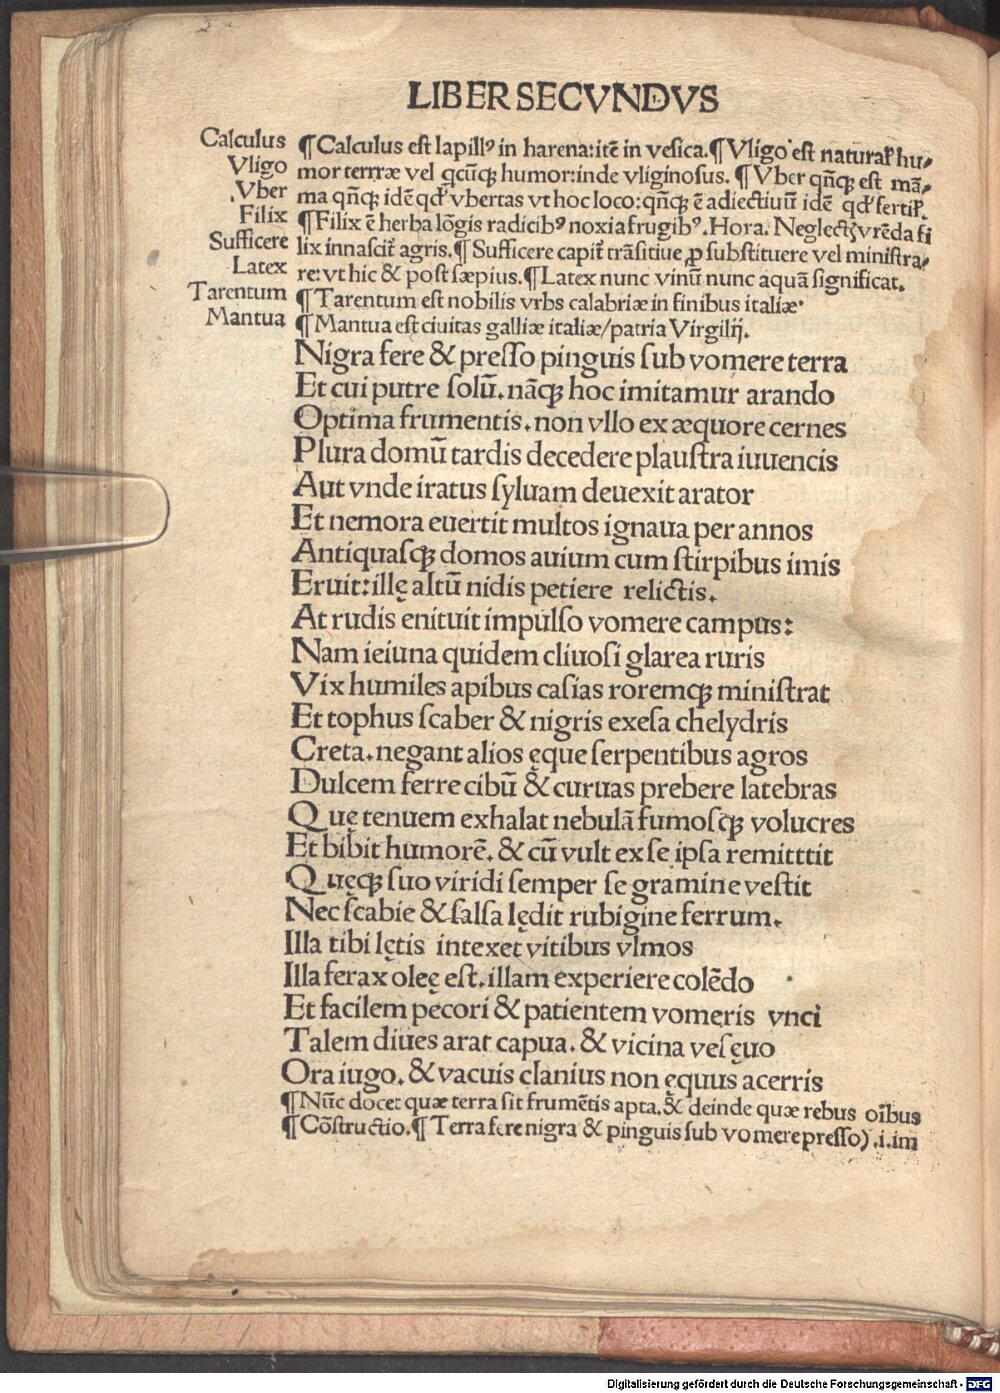 LIBER SECVNDVS
Calculus ¶Calculus eſt lapillꝰ in harena: itē in veſica. ¶Vligo eſt naturał hu⸗
Vligo mor terræ vel qcūqꝫ humor: inde vliginoſus. ¶Vber qñqꝫ eſt mã⸗
Vber ma qñqꝫ idē qd' vbertas vt hoc loco: qñqꝫ ē adiectiuū idē qd' fertił.
Filix ¶Filix ē herba lōgis radicibꝰ noxia frugibꝰ. Hora. Neglectꝭ vrēda fi
Sufficere lix innaſcit̃ agris. ¶Sufficere capit̃ trãſitiue ꝓ ſubſtituere vel miniſtra⸗
Latex re: vt hic & poſt ſæpius. ¶Latex nunc vinū nunc aquã ſignificat.
Tarentum ¶Tarentum eſt nobilis vrbs calabriæ in finibus italiæ·
Mantua ¶Mantua eſt ciuitas galliæ italiæ/patria Virgilij.
Nigra fere & preſſo pinguis ſub vomere terra
Et cui putre ſolū. nãqꝫ hoc imitamur arando
Optima frumentis. non vllo ex æquore cernes
Plura domū tardis decedere plauſtra iuuencis
Aut vnde iratus ſyluam deuexit arator
Et nemora euertit multos ignaua per annos
Antiquaſqꝫ domos auium cum ſtirpibus imis
Eruit: illę altū nidis petiere relictis.
At rudis enituit impulſo vomere campus:
Nam ieiuna quidem cliuoſi glarea ruris
Vix humiles apibus caſias roremqꝫ miniſtrat
Et tophus ſcaber & nigris exeſa chelydris
Creta. negant alios ęque ſerpentibus agros
Dulcem ferre cibū & curuas prebere latebras
Quę tenuem exhalat nebulã fumoſqꝫ volucres
Et bibit humorē. & cū vult ex ſe ipſa remitttit
Quęqꝫ ſuo viridi ſemper ſe gramine veſtit
Nec ſcabie & ſalſa lędit rubigine ferrum.
Illa tibi lętis intexet vitibus vlmos
Illa ferax oleę eſt. illam experiere colēdo
Et facilem pecori & patientem vomeris vnci
Talem diues arat capua. & vicina veſęuo
Ora iugo. & vacuis clanius non ęquus acerris
¶Nūc docet quæ terra ſit frumētis apta. & deinde quæ rebus oībus
¶Cōſtructio. ¶Terra fere nigra & pinguis ſub vomere preſſo) .i. im
Digitalisierung gefördert durch die Deutsche Forschungsgemeinschaft - DFG